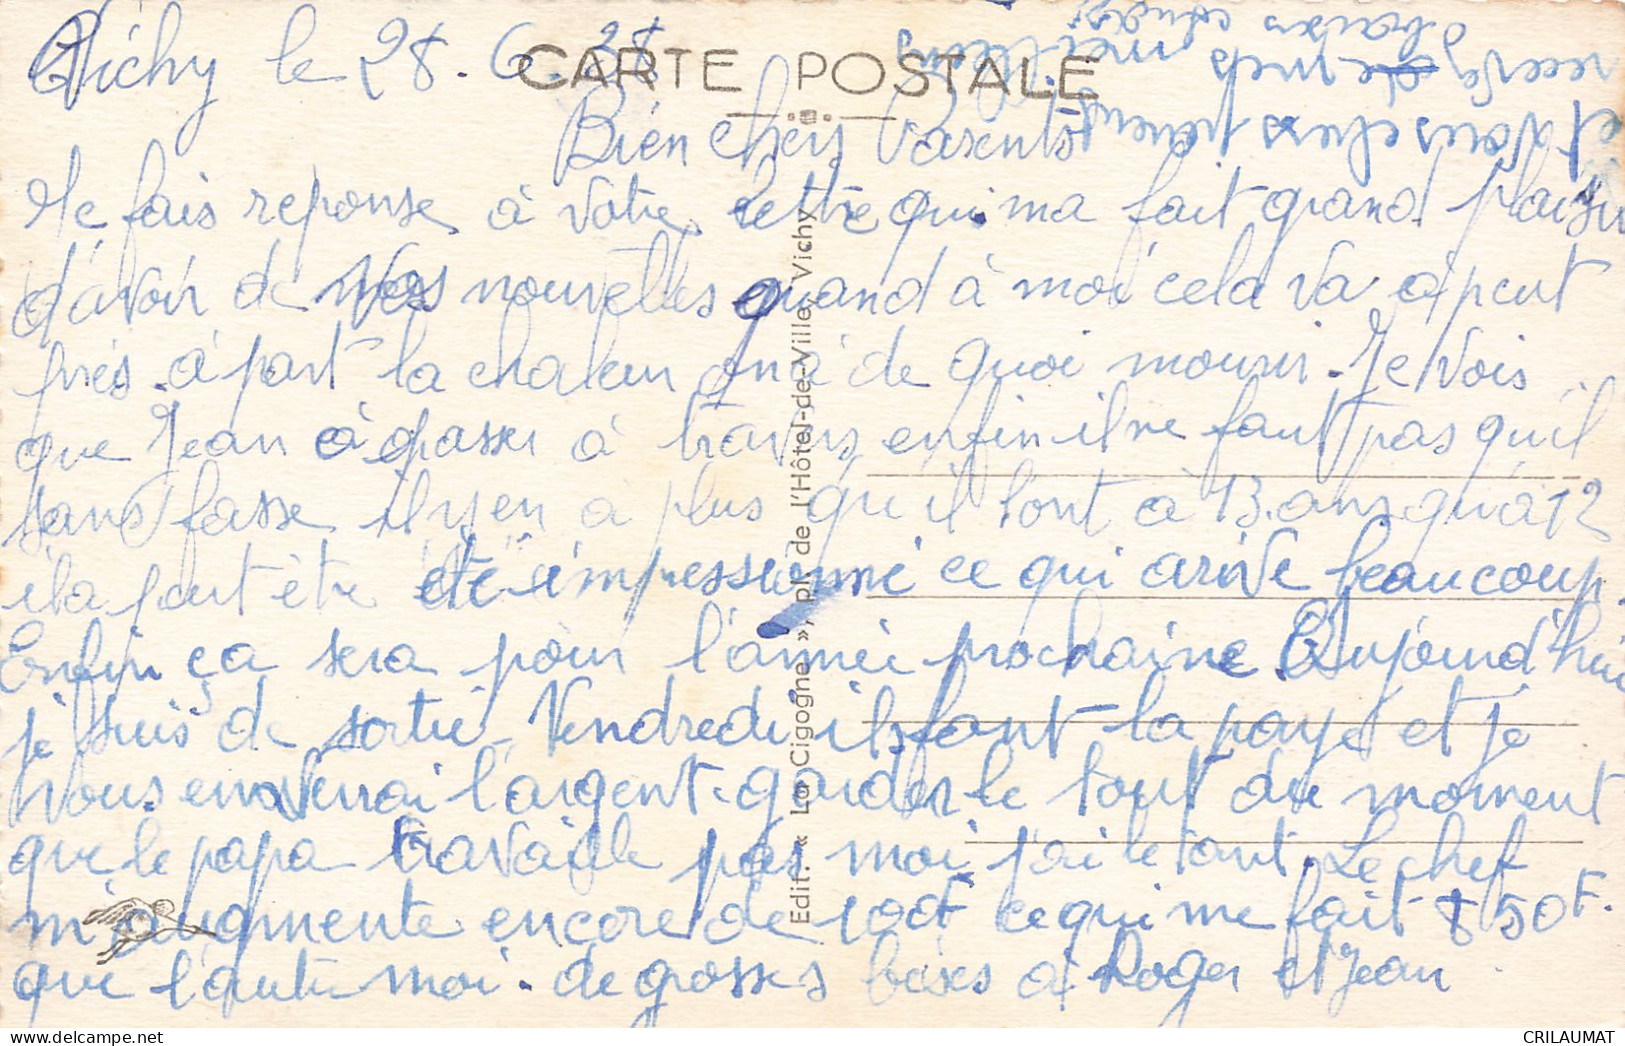 Vichy le 28. 6. 38
CARTE POSTALE
Bien Chers Parents
Je fais reponse à votre lettre qui ma fait grand plaisir
d'avoir de vos nouvelles quand à moi cela va à peut
près. à part la chaleur on à de quoi mourir. Je vois
que Jean à passer à travers enfin il ne faut pas qu'il
sans fasse il y en à plus qu'il lont à 13 ans qu'à 12
il a peut être été impressionné ce qui arive beaucoup.
Enfin ça sera pour l'année prochaine. Aujourd'hui
je suis de sortie. Vendredi ils font la paye et je
vous enverrai l'argent. garder le tout du moment
que le papa travaille pas moi j'ai le tant. Le chef
m'augmente encore de 100F ce qui me fait 850F.
que l'autre moi. de grosses bises à Roger et Jean
et vous chers parents
recevez de mets meilleurs
baisers
Edit. « La Cigogne », pl. de l'Hôtel-de-Ville, Vichy
CRILAUMAT